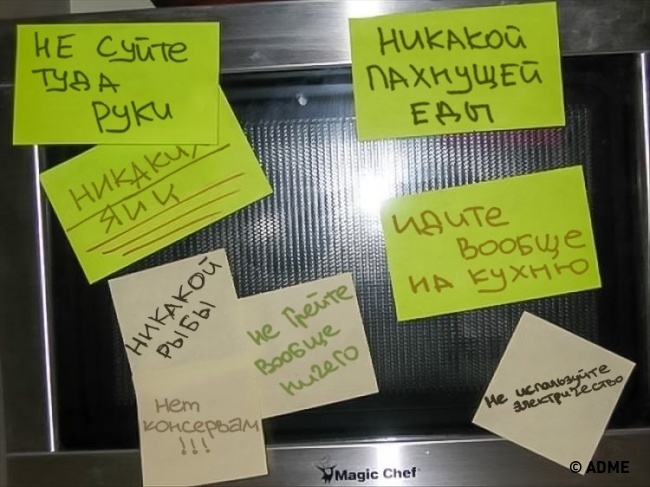 НЕ СУЙТЕ
ТУДА
РУКИ
НИКАКОЙ
ПАХНУЩЕЙ
ЕДЫ
НИКАКИХ
ЯИЦ
ИДИТЕ
ВООБЩЕ
НА КУХНЮ
НИКАКОЙ
РЫБЫ
Не Грейте
вообще
ничего
Нет
консервам
!!!
Не используйте
электричество
Magic Chef
© ADME